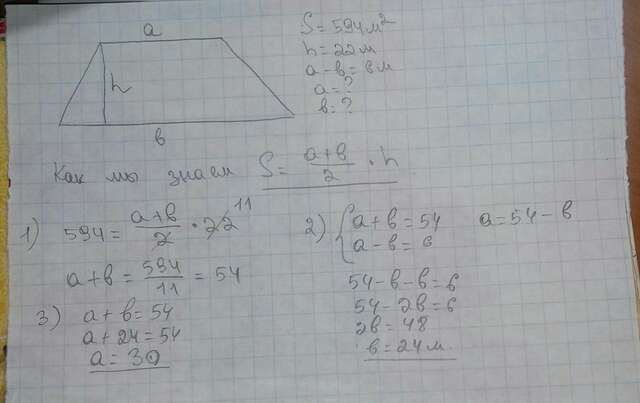 a
h
в
S = 594 м²
h = 22 м
a - в = 6 м
a = ?
в = ?
Как мы знаем S = (a+в)/2 · h
1) 594 = (a+в)/2 · 22 11
a + в = 594/11 = 54
2) { a + в = 54
a - в = 6
a = 54 - в
54 - в - в = 6
54 - 2в = 6
2в = 48
в = 24 м.
3) a + в = 54
a + 24 = 54
a = 30